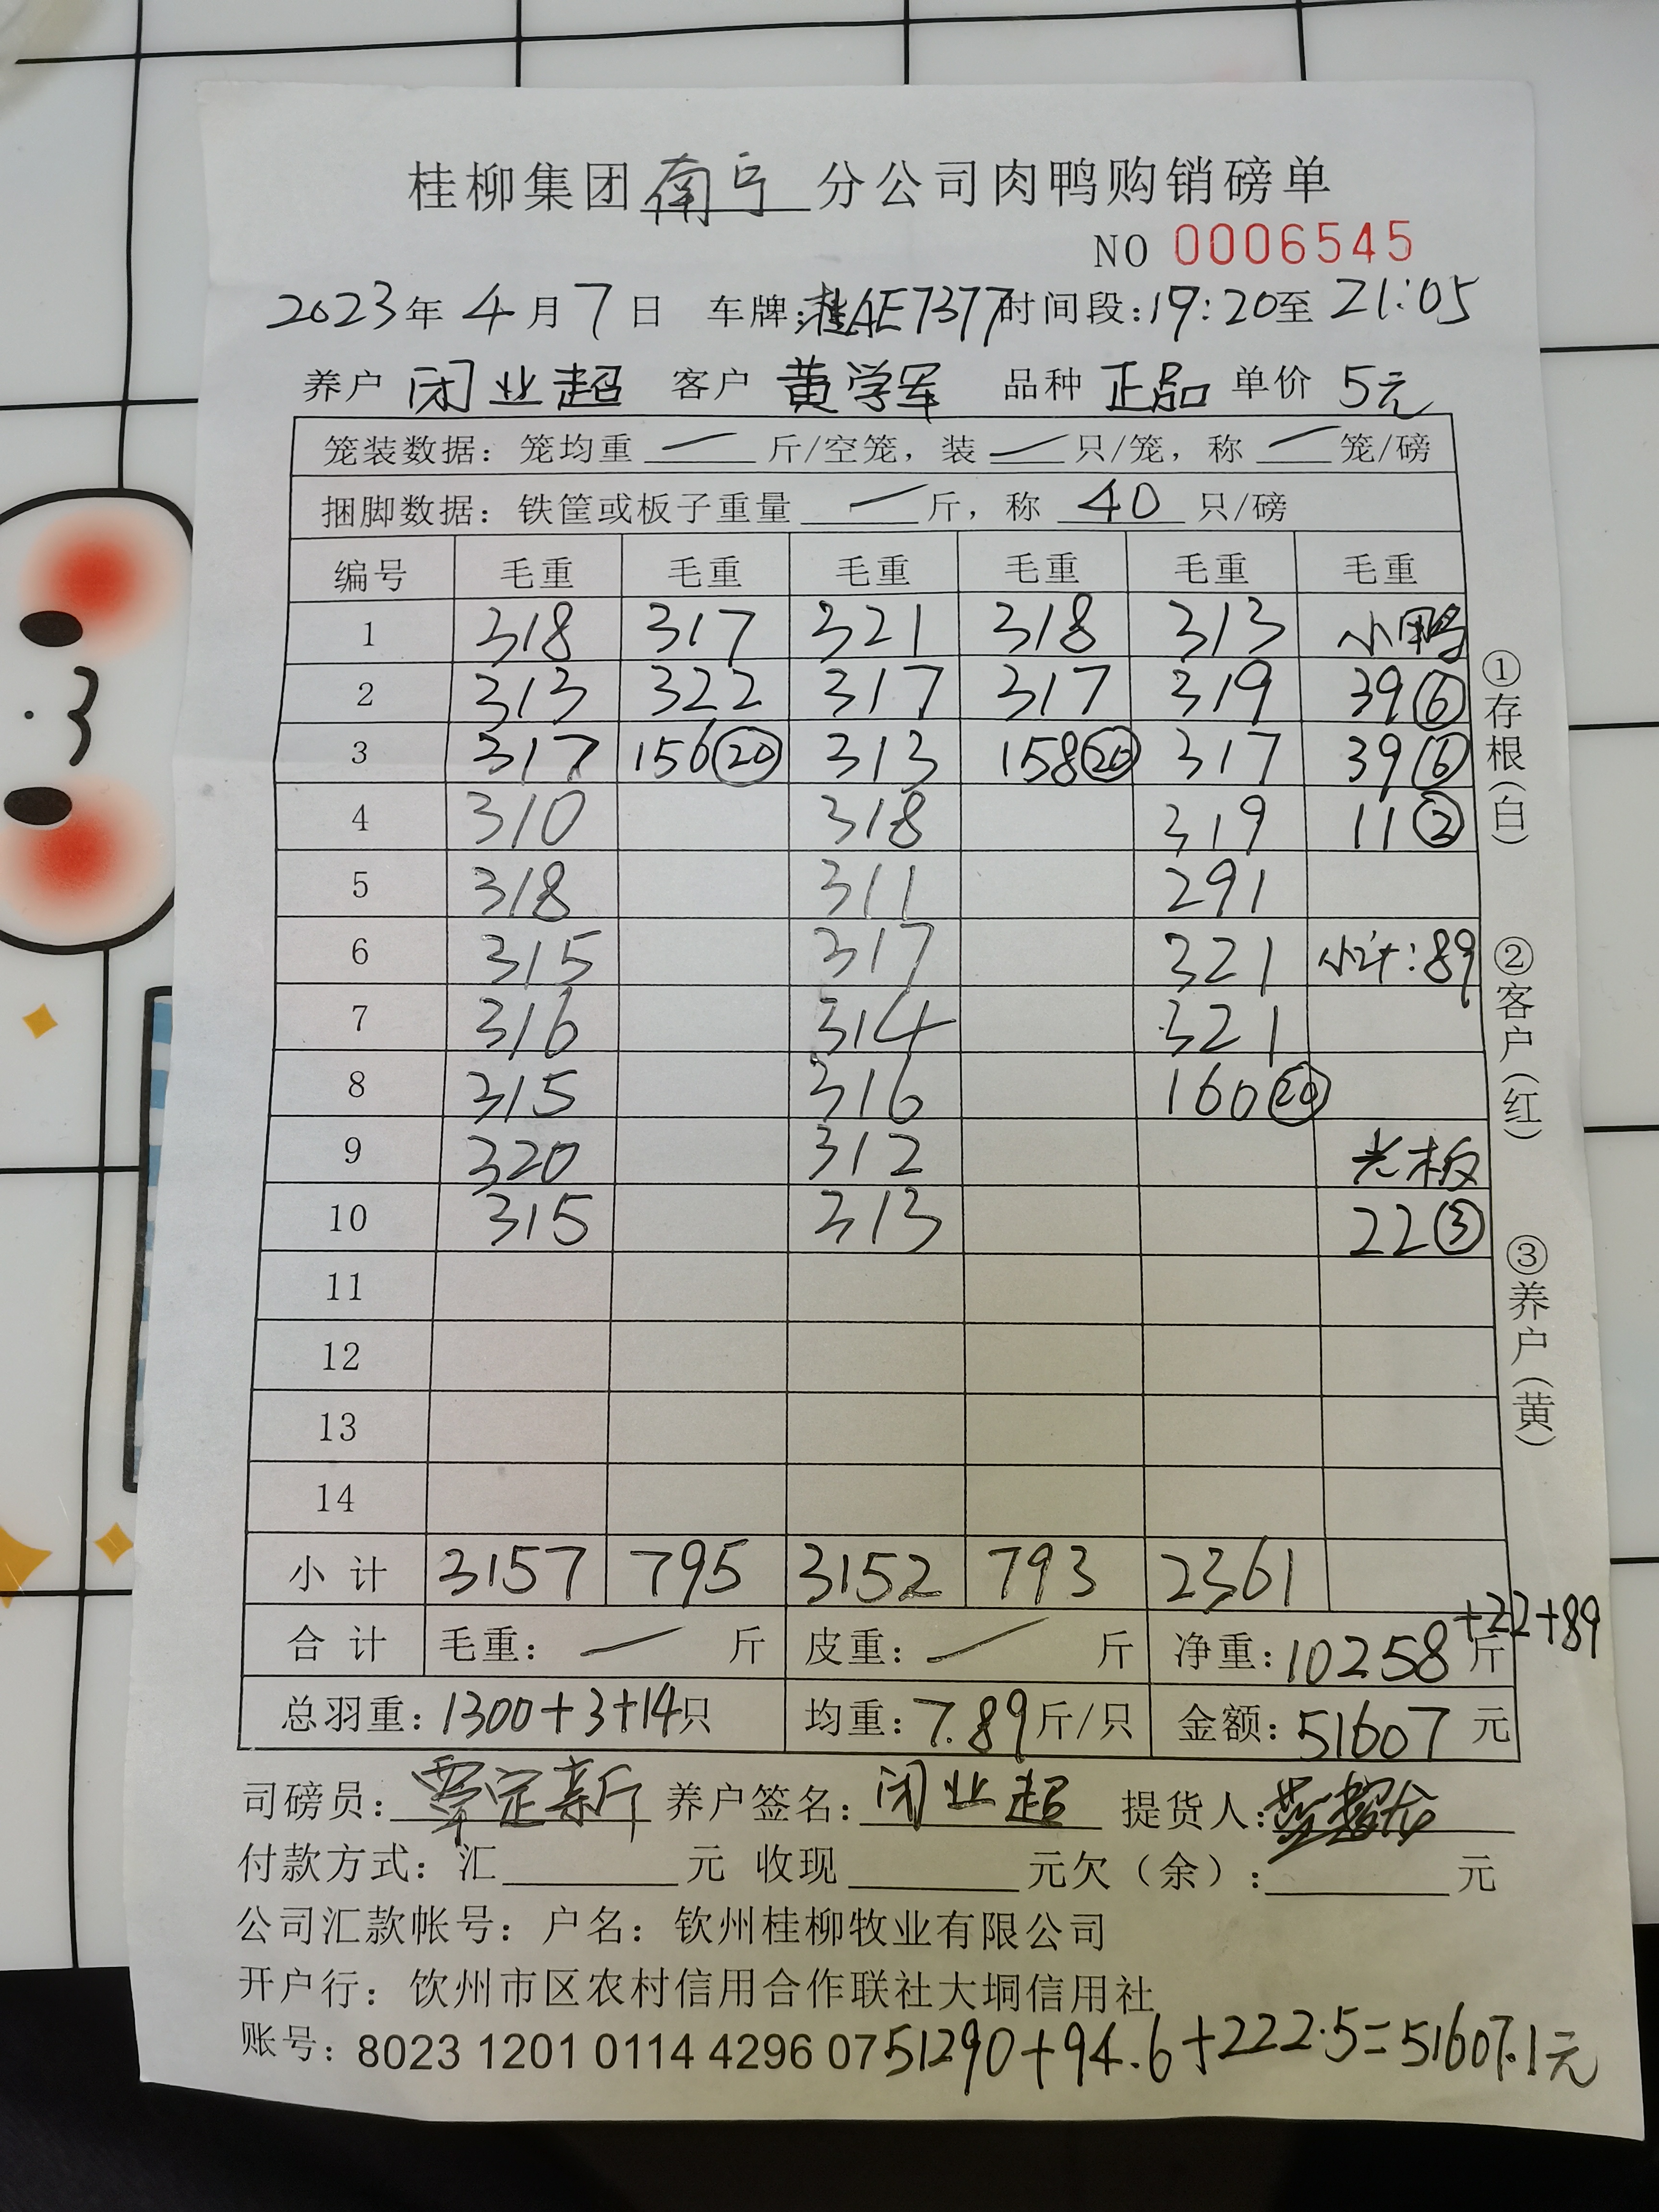 桂柳集团南宁分公司肉鸭购销磅单
NO 0006545
2023年4月7日 车牌:桂AE7377时间段:19:20至21:05
养户 闭业超 客户 黄学军 品种 正品 单价 5元
笼装数据: 笼均重 — 斤/空笼, 装 — 只/笼, 称 — 笼/磅
捆脚数据: 铁筐或板子重量 — 斤, 称 40 只/磅
编号 毛重 毛重 毛重 毛重 毛重 毛重
1 318 317 321 318 313 小鸭
2 313 322 317 317 319 39⑥
3 317 156⑳ 313 158⑳ 317 39⑥
4 310 318 319 11②
5 318 311 291
6 315 317 321 小计:89
7 316 314 321
8 315 316 160⑳
9 320 312 光板
10 315 313 22③
11
12
13
14
小计 3157 795 3152 793 2361
合计 毛重: — 斤 皮重: — 斤 净重:10258斤+22+89
总羽重:1300+3+14只 均重:7.89斤/只 金额:51607元
①存根(白)
②客户(红)
③养户(黄)
司磅员:覃定新 养户签名:闭业超 提货人:
付款方式: 汇 元 收现 元欠(余): 元
公司汇款帐号: 户名: 钦州桂柳牧业有限公司
开户行: 饮州市区农村信用合作联社大垌信用社
账号: 8023 1201 0114 4296 07 51290+94.6+222.5=51607.1元